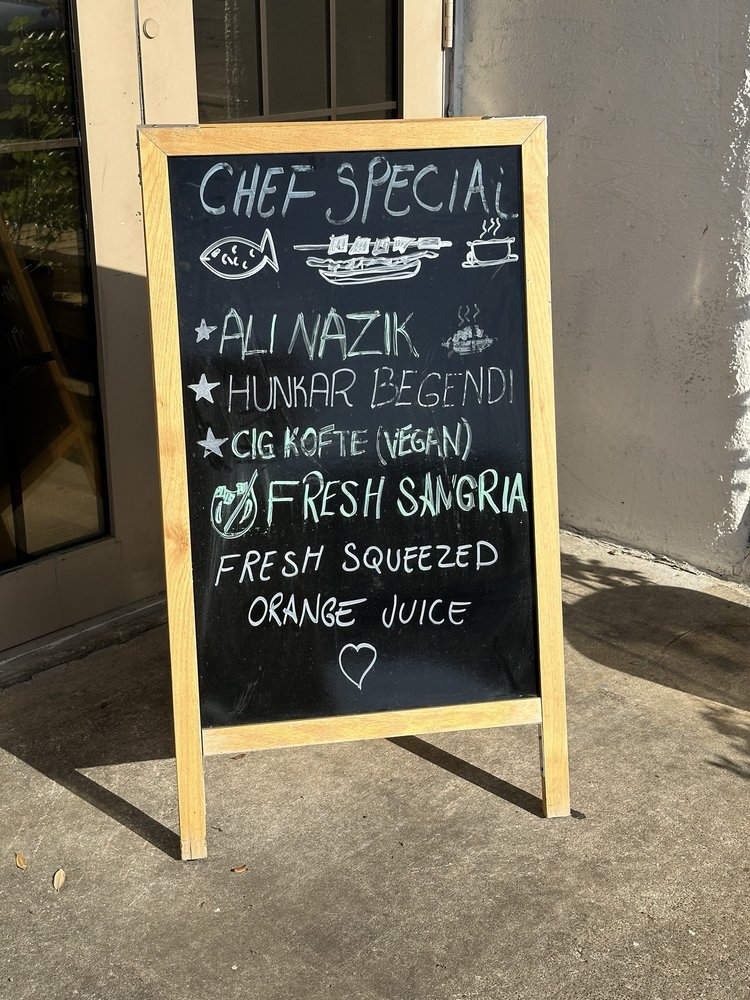 CHEF SPECIAL
ALI NAZIK
HUNKAR BEGENDI
CIG KOFTE (VEGAN)
FRESH SANGRIA
FRESH SQUEEZED
ORANGE JUICE